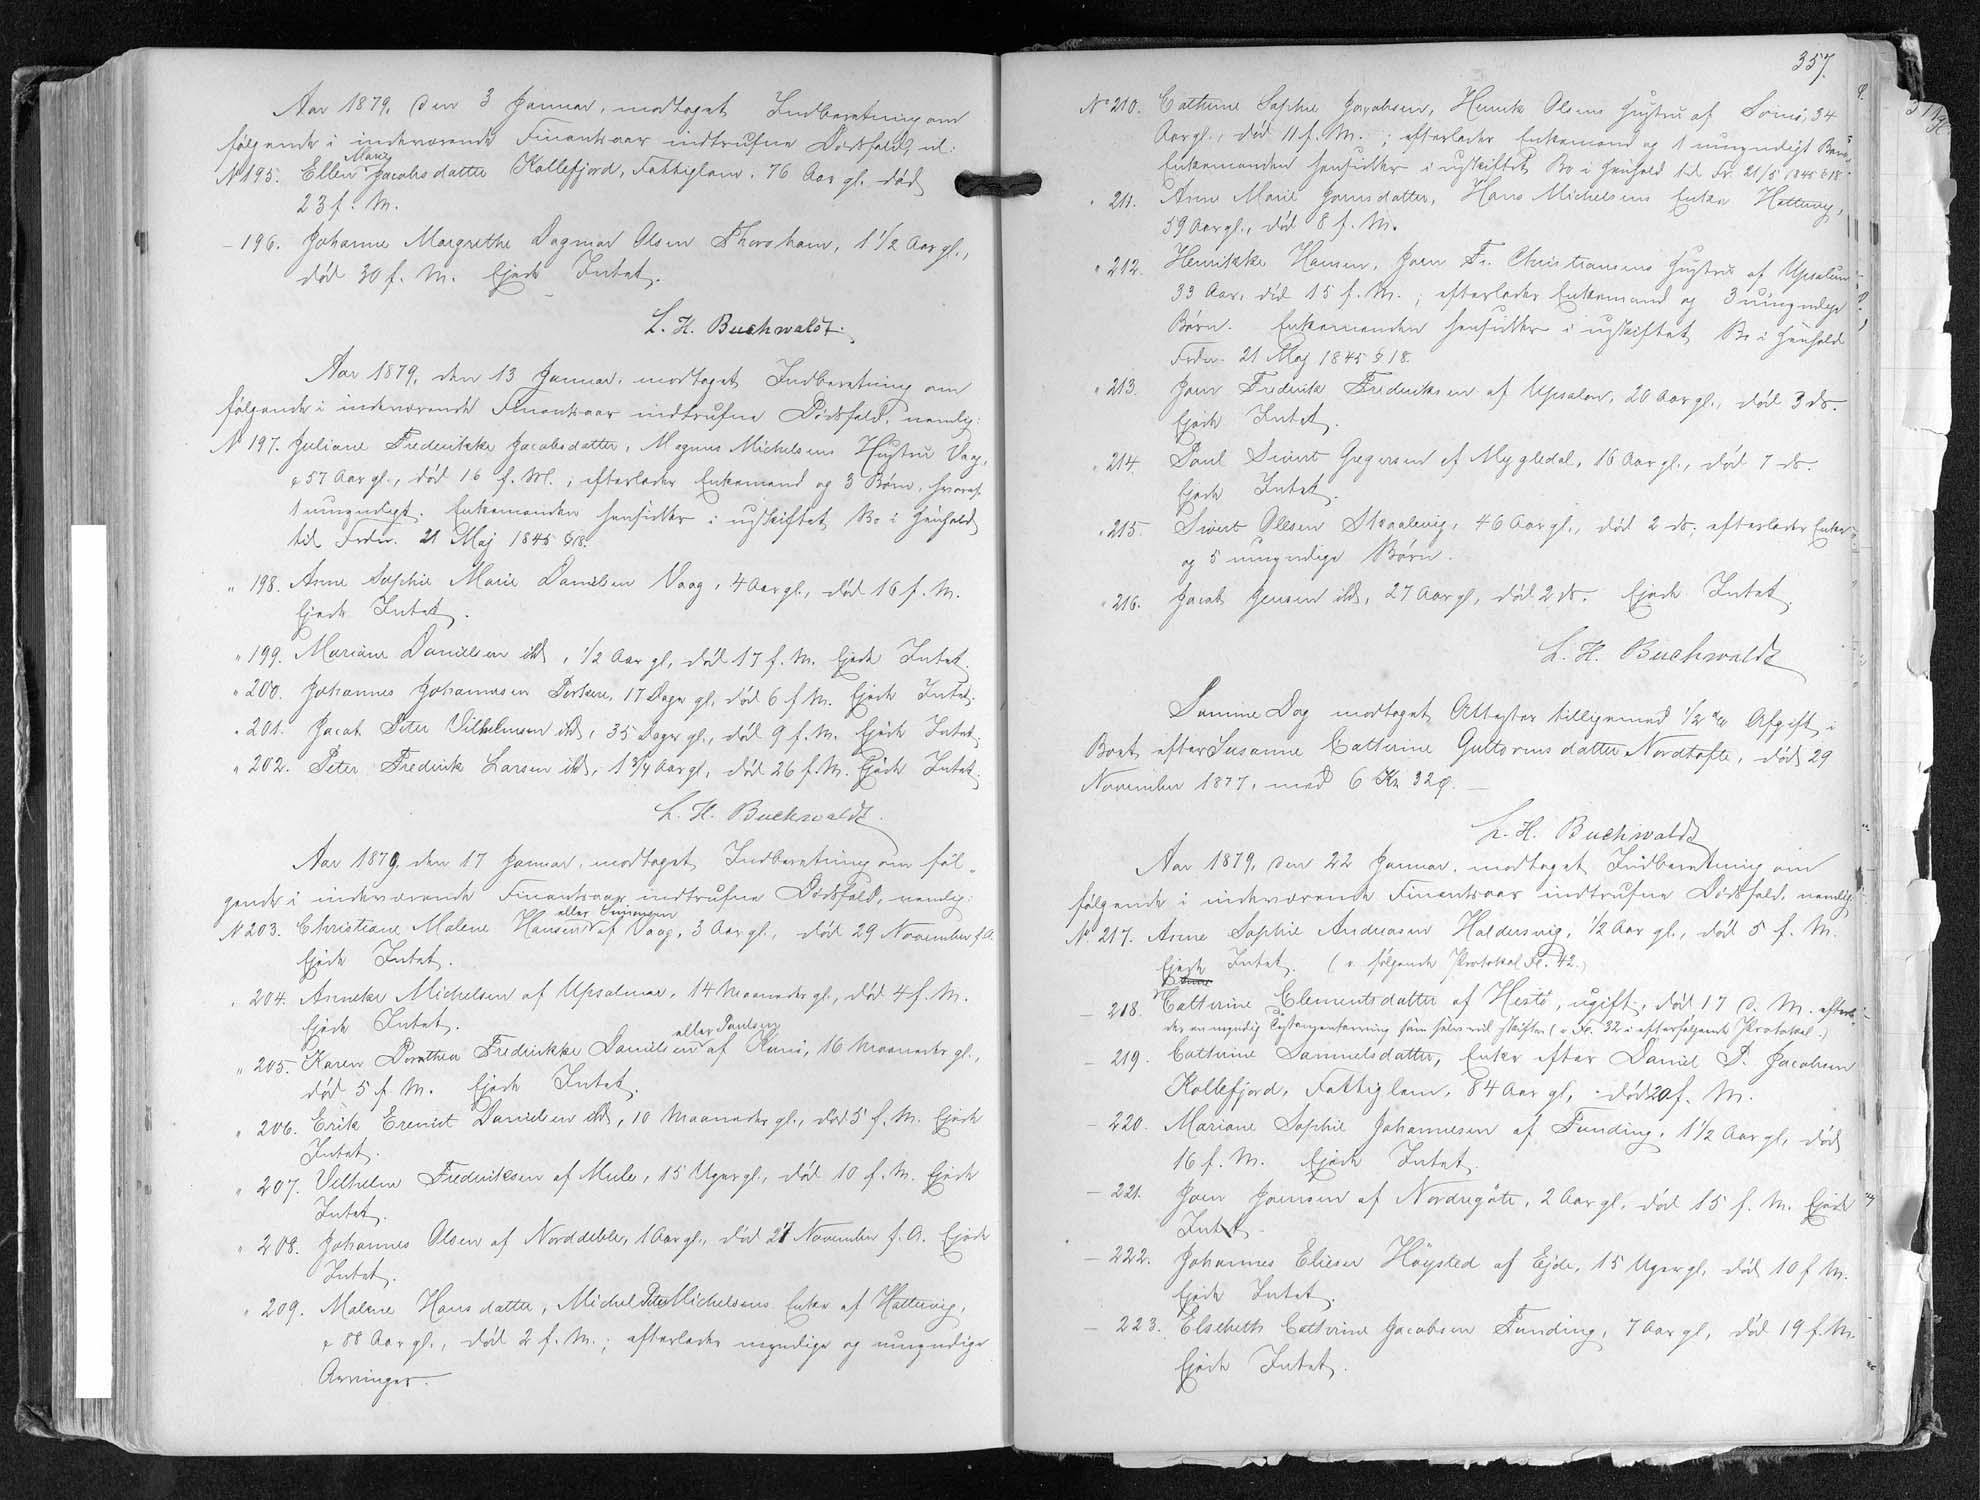 Aar 1879, den 3 Januar, modtaget Indberetning om
følgende i indeværende Finantsaar indtrufne Dødsfald, nl:
No 195. Ellen Marie Jacobsdatter Kollefjord, Fattiglem, 76 Aar gl. død
23 f. M.
- 196. Johanne Margrethe Dagmar Olsen Thorshavn, 1 1/2 Aar gl.,
død 30 f. M. Ejede Intet.
L. H. Buchwaldt.
Aar 1879, den 13 Januar, modtaget Indberetning om
følgende i indeværende Finantsaar indtrufne Dødsfald, nemlig:
No 197. Juliane Frederikke Jacobsdatter, Magnus Michelsens Hustru Vaag,
57 Aar gl., død 16 f. M.; efterlader Enkemand og 3 Børn, hvoraf
1 umyndigt. Enkemanden hensidder i uskiftet Bo i Henhold
til Frdn. 21 Maj 1845 § 18.
" 198. Anne Sophie Marie Danielsen Vaag, 4 Aar gl., død 16 f. M.
Ejede Intet.
" 199. Mariane Danielsen ibd, 1/2 Aar gl, død 17 f. M. Ejede Intet.
" 200. Johannes Johannesen Porkere, 17 Dage gl, død 6 f. M. Ejede Intet.
" 201. Jacob Peter Vilhelmsen ibd, 35 Dage gl., død 9 f. M. Ejede Intet.
" 202. Peter Fredrik Larsen ibd, 1 3/4 Aar gl, død 26 f. M. Ejede Intet.
L. H. Buchwaldt.
Aar 1879 den 17 Januar, modtaget Indberetning om føl-
gende i indeværende Finantsaar indtrufne Dødsfald, nemlig:
No 203. Christiane Malene Hansen eller Simonsen af Vaag, 3 Aar gl., død 29 November f. A.
Ejede Intet.
" 204. Anneke Michelsen af 14 Maaneder gl., død 4 f. M.
Ejede Intet.
" 205. Karen Dorothea Fredrikke Danielsen eller Poulsen af Kunø, 16 Maaneder gl.,
død 5 f. M. Ejede Intet.
" 206. Erik Danielsen ibd, 10 Maaneder gl., død 5 f. M. Ejede
Intet.
" 207. Vilhelm Frederiksen af Mule, 15 Uger gl., død 10 f. M. Ejede
Intet.
" 208. Johannes Olsen af Norddeble, 1 Aar gl., død 27 November f. A. Ejede
Intet.
" 209. Malene Hansdatter, Michel Peter Michelsens Enke af Hattevig,
88 Aar gl., død 2 f. M.; efterlader myndige og umyndige
Arvinger.
357.
No 210. Cathrine Sophie Jacobsen, Henrik Olsens Hustru af Svinø, 34
Aar gl., død 11 f. M.; efterlader Enkemand og 1 umyndigt Barn,
Enkemanden hensidder i uskiftet Bo i Henhold til Fr. 21/5 1845 § 18.
" 211. Anne Marie Joensdatter, Hans Michelsens Enke Hattevig,
59 Aar gl., død 8 f. M.
" 212. Henrikke Hansen, Joen Fr. Christiansens Hustru af
33 Aar, død 15 f. M.; efterlader Enkemand og 3 umyndige
Børn. Enkemanden hensidder i uskiftet Bo i Henhold
Frdn. 21 Maj 1845 § 18.
" 213. Joen Fredrik Frederiksen af 20 Aar gl., død 3 ds.
Ejede Intet.
" 214. Poul Sivert Gregersen af Mygledal, 16 Aar gl., død 7 ds.
Ejede Intet.
" 215. Sivert Ollesen Skaalevig, 46 Aar gl., død 2 ds; efterlader Enke
og 5 umyndige Børn.
" 216. Jacob Jensen ibd, 27 Aar gl, død 2 ds. Ejede Intet.
L. H. Buchwaldt
Samme Dag modtaget Attester tilligemed 1/2 % Afgift i
Boet efter Susanne Cathrine Guttormsdatter Nordtofte, død 29
November 1877, med 6 Kr. 32 Ø.
L. H. Buchwaldt
Aar 1879, den 22 Januar, modtaget Indberetning om
følgende i indeværende Finantsaar indtrufne Dødsfald, nemlig
No. 217. Anne Sophie Andreasen Haldersvig, 1/2 Aar gl., død 5 f. M.
Ejede Intet. (v. følgende Protokol Fol. 42.)
- 218. Cathrine Clementsdatter af Hestø, ugift, død 17 d. M. efterla-
der en myndig Testamentarving som selv vil skifte (v. Fo. 32 i efterfølgende Protokol.)
- 219. Cathrine Samuelsdatter, Enke efter Daniel P. Jacobsen
Kollefjord, Fattiglem, 84 Aar gl, død 20 f. M.
- 220. Mariane Sophie Johannesen af Funding, 1 1/2 Aar gl, død
16 f. M. Ejede Intet.
- 221. Joen Joensen af Nordregøte, 2 Aar gl, død 15 f. M. Ejede
Intet.
- 222. Johannes Elieser Høysted af Ejde, 15 Uger gl, død 10 f. M.
Ejede Intet.
- 223. Elsebeth Cathrine Jacobsen Funding, 7 Aar gl, død 19 f. M.
Ejede Intet.